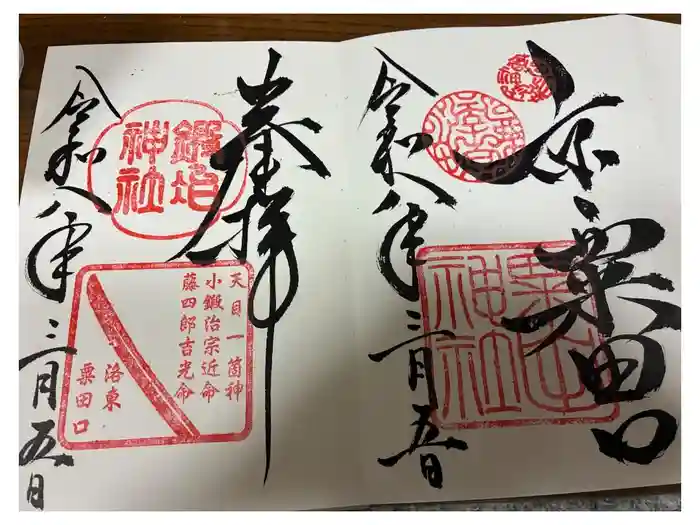 京 粟田口
粟田
神社
令和八年 三月五日
奉拝
鍛冶
神社
天目一箇神
小鍛治宗近命
藤四郎吉光命
洛東
粟田口
令和八年 三月五日